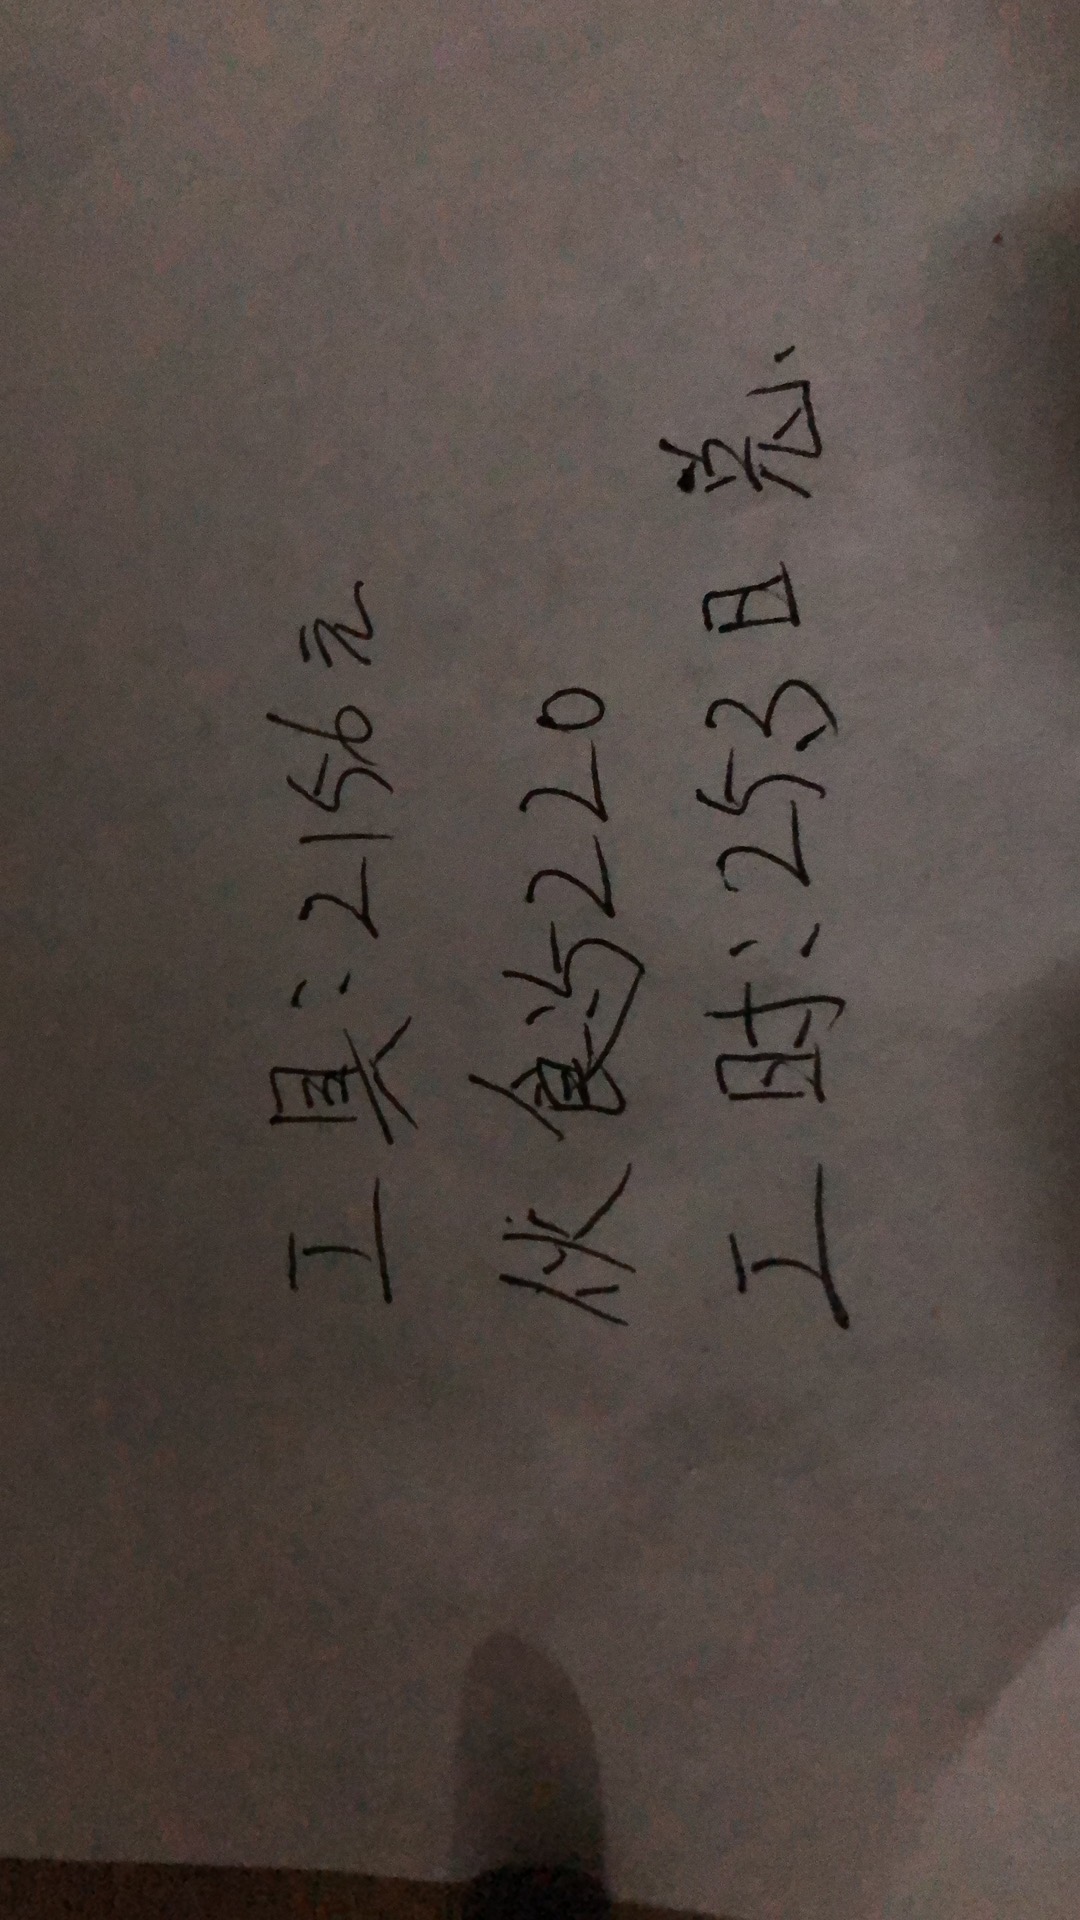 工具：2156元
伙食：5220
工时：253日总